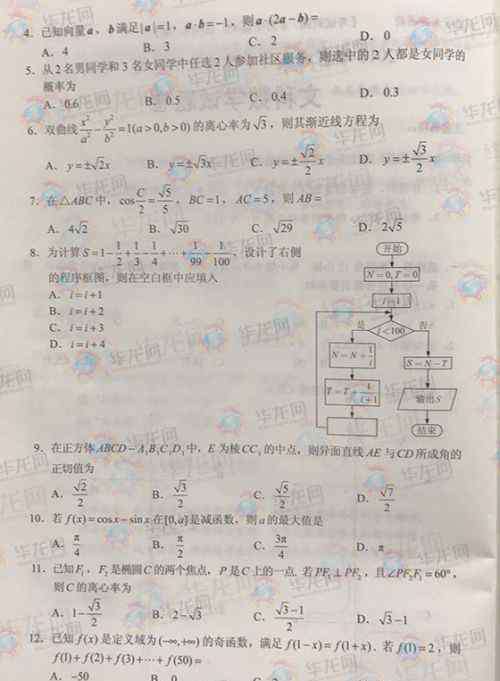 4. 已知向量a，b满足|a|=1，a·b=−1，则a·(2a−b)=
A. 4 B. 3 C. 2 D. 0
5. 从2名男同学和3名女同学中任选2人参加社区服务，则选中的2人都是女同学的
概率为
A. 0.6 B. 0.5 C. 0.4 D. 0.3
6. 双曲线x²/a²−y²/b²=1(a>0,b>0)的离心率为√3，则其渐近线方程为
A. y=±√2x B. y=±√3x C. y=±√2/2 x D. y=±√3/2 x
7. 在△ABC中，cos C/2=√5/5，BC=1，AC=5，则AB=
A. 4√2 B. √30 C. √29 D. 2√5
8. 为计算S=1−1/2+1/3−1/4+⋯+1/99−1/100，设计了右侧
的程序框图，则在空白框中应填入
A. i=i+1
B. i=i+2
C. i=i+3
D. i=i+4
开始
N=0,T=0
i=1
是 i<100 否
N=N+1/i
S=N−T
T=T+1/(i+1)
输出S
结束
9. 在正方体ABCD−A₁B₁C₁D₁中，E为棱CC₁的中点，则异面直线AE与CD所成角的
正切值为
A. √2/2 B. √3/2 C. √5/2 D. √7/2
10. 若f(x)=cosx−sinx在[0,a]是减函数，则a的最大值是
A. π/4 B. π/2 C. 3π/4 D. π
11. 已知F₁，F₂是椭圆C的两个焦点，P是C上的一点.若PF₁⊥PF₂，且∠PF₂F₁=60°，
则C的离心率为
A. 1−√3/2 B. 2−√3 C. (√3−1)/2 D. √3−1
12. 已知f(x)是定义域为(−∞,+∞)的奇函数，满足f(1−x)=f(1+x). 若f(1)=2，则
f(1)+f(2)+f(3)+⋯+f(50)=
A. −50 B. 0
华龙网